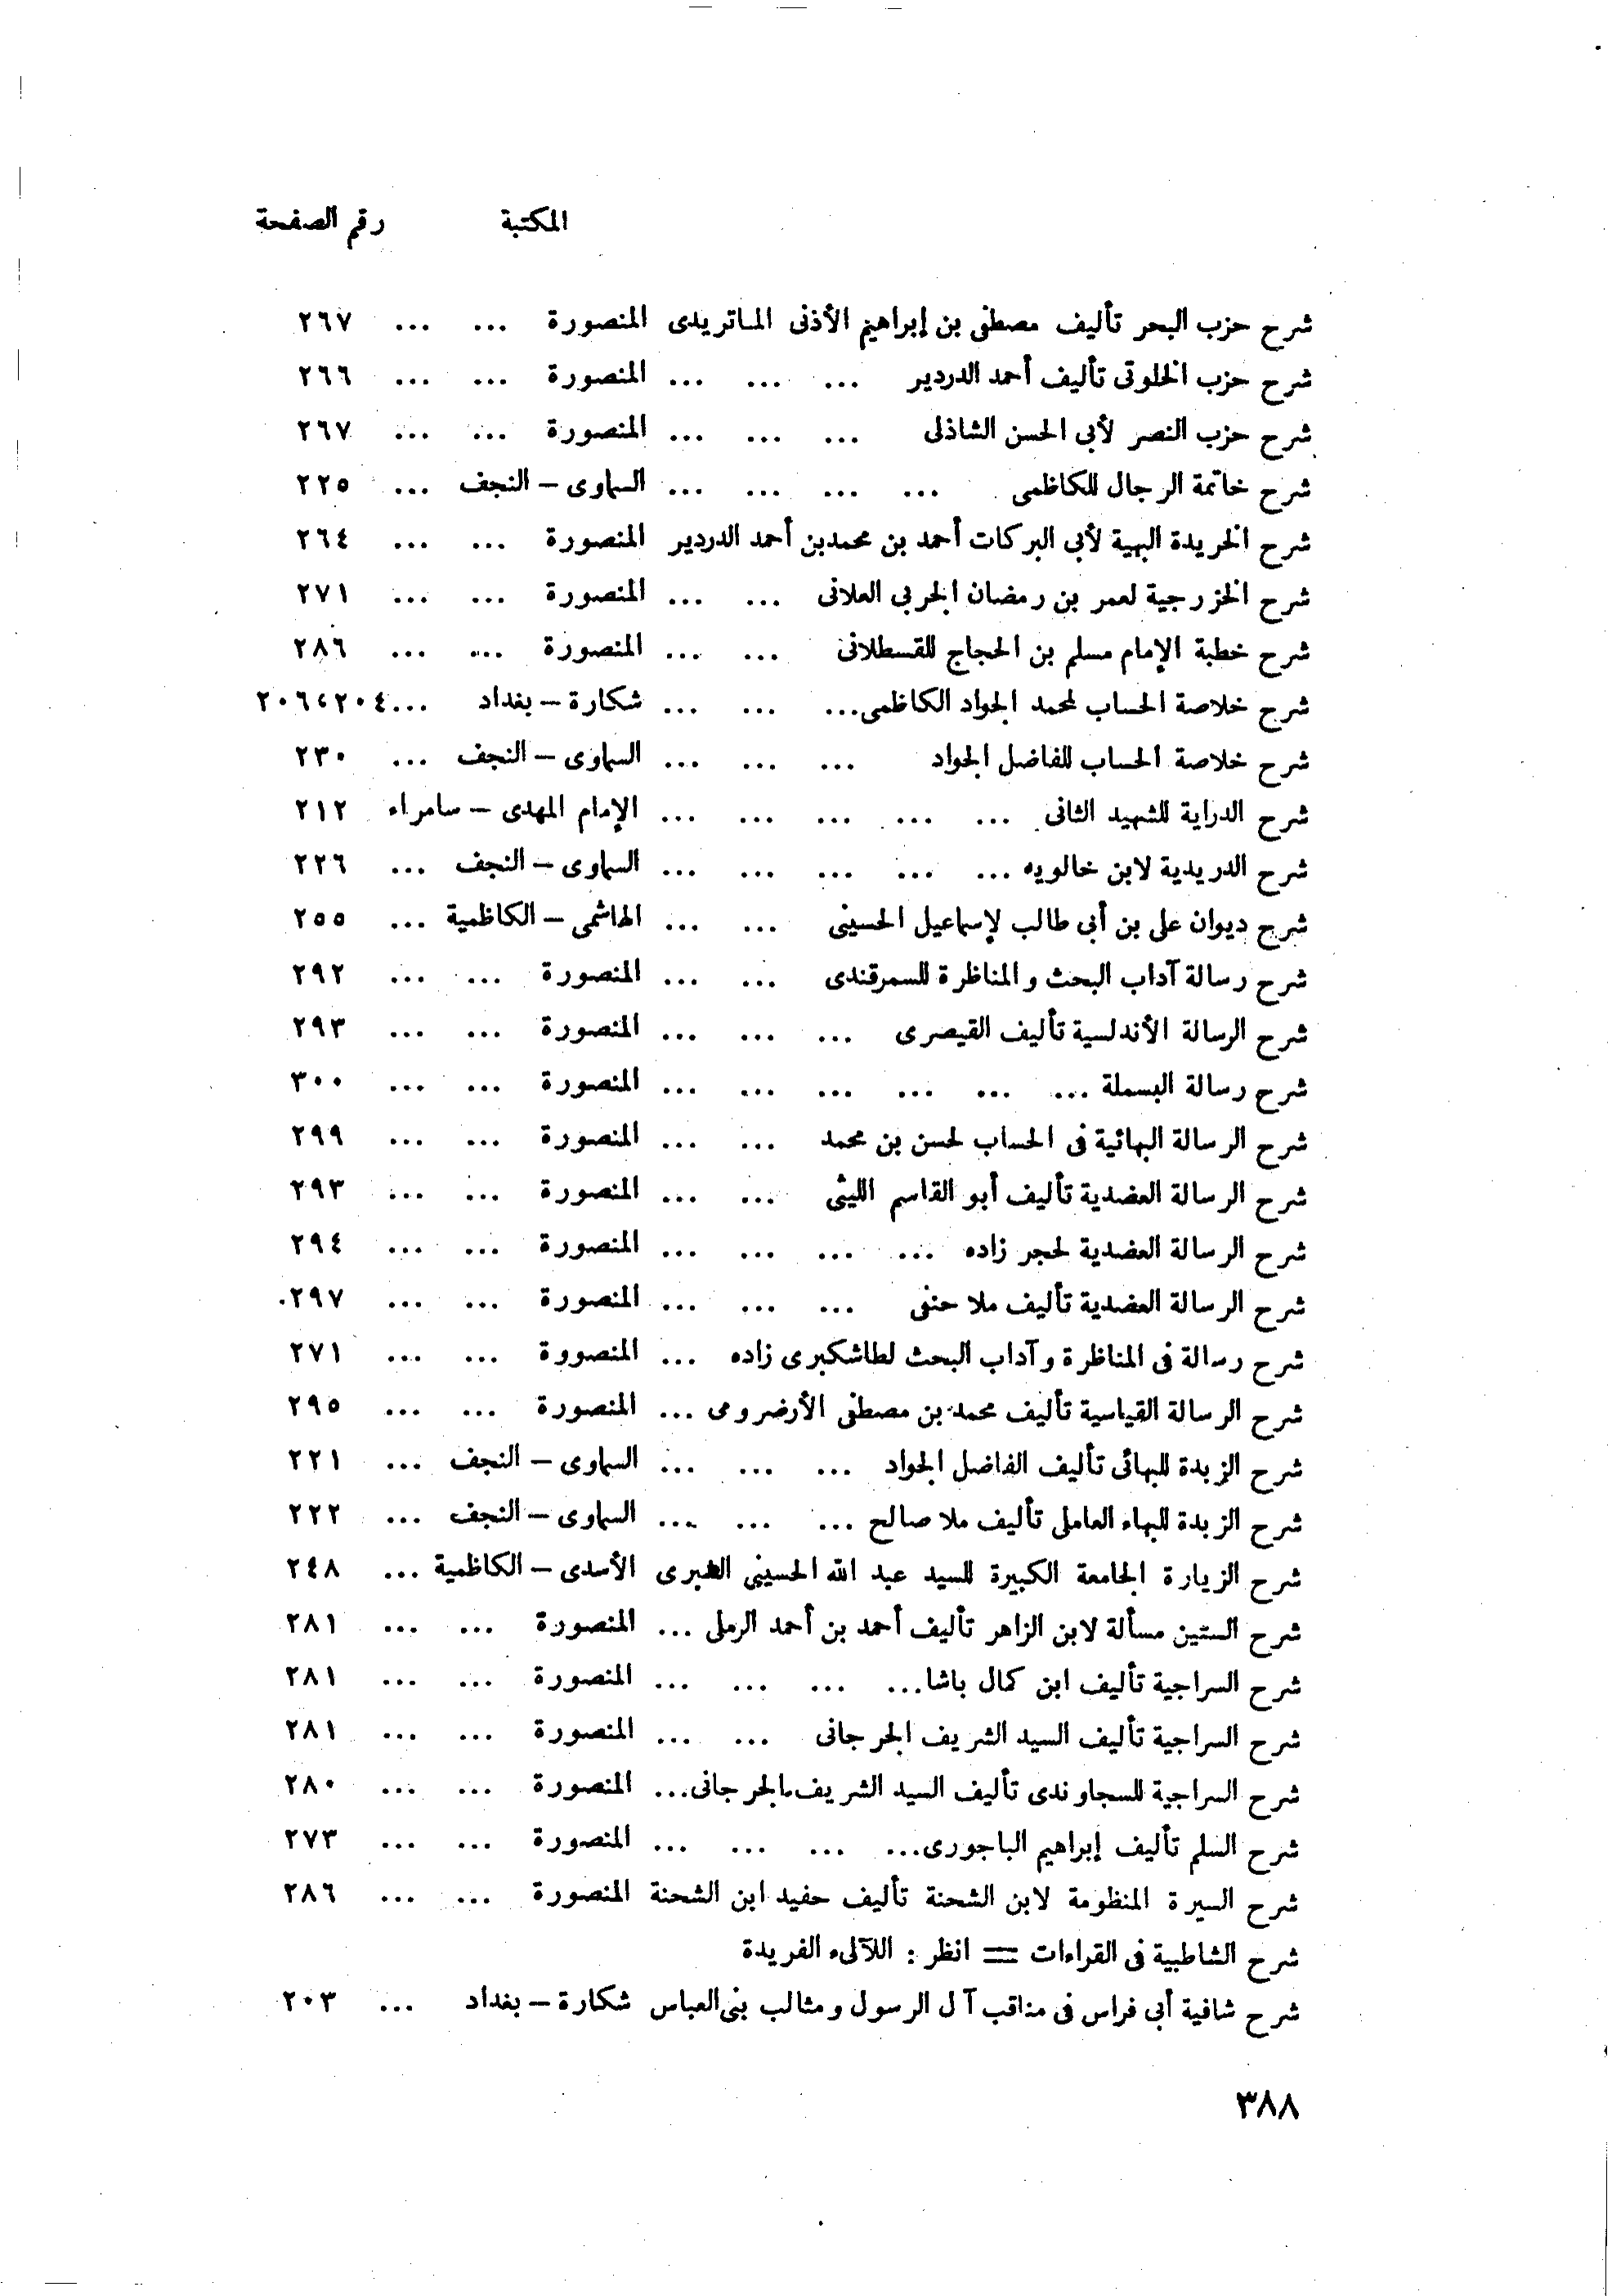 المكتبة رقم الصفحة
شرح حزب البحر تأليف مصطفى بن إبراهيم الأذنى الماتريدى المنصورة ... ... ٢٦٧
شرح حزب الخلوتى تأليف أحمد الدردير ... ... ... المنصورة ... ... ٢٦٦
شرح حزب النصر لأبى الحسن الشاذلى ... ... ... المنصورة ... ... ٢٦٧
شرح خاتمة الرجال للكاظمى ... ... ... ... السماوى – النجف ... ٢٢٥
شرح الخريدة البهية لأبى البركات أحمد بن محمد بن أحمد الدردير المنصورة ... ... ٢٦٤
شرح الخزرجية لعمر بن رمضان الجربى العلانى ... ... المنصورة ... ... ٢٧١
شرح خطبة الإمام مسلم بن الحجاج للقسطلانى ... ... المنصورة ... ... ٢٨٦
شرح خلاصة الحساب لمحمد الجواد الكاظمى ... ... ... شكارة – بغداد ... ٢٠٤،٢٠٦
شرح خلاصة الحساب للفاضل الجواد ... ... ... السماوى – النجف ... ٢٣٠
شرح الدراية للشهيد الثانى ... ... ... ... ... الإمام المهدى – سامراء ٢١٢
شرح الدريدية لابن خالويه ... ... ... ... ... السماوى – النجف ... ٢٢٦
شرح ديوان على بن أبى طالب لإسماعيل الحسينى ... ... الهاشمى – الكاظمية ... ٢٥٥
شرح رسالة آداب البحث والمناظرة للسمرقندى ... ... المنصورة ... ... ٢٩٢
شرح الرسالة الأندلسية تأليف القيصرى ... ... ... المنصورة ... ... ٢٩٣
شرح رسالة البسملة ... ... ... ... ... ... المنصورة ... ... ٣٠٠
شرح الرسالة البهائية فى الحساب لحسن بن محمد ... ... المنصورة ... ... ٢٩٩
شرح الرسالة العضدية تأليف أبو القاسم الليثى ... ... المنصورة ... ... ٢٩٣
شرح الرسالة العضدية لحجر زاده ... ... ... ... المنصورة ... ... ٢٩٤
شرح الرسالة العضدية تأليف ملا حنفى ... ... ... المنصورة ... ... ٢٩٧
شرح رسالة فى المناظرة وآداب البحث لطاشكبرى زاده ... المنصوورة ... ... ٢٧١
شرح الرسالة القياسية تأليف محمد بن مصطفى الأرضرومى ... المنصورة ... ... ٢٩٥
شرح الزبدة للبهائى تأليف الفاضل الجواد ... ... ... السماوى – النجف ... ٢٢١
شرح الزبدة للبهاء العاملى تأليف ملا صالح ... ... ... السماوى – النجف ... ٢٢٢
شرح الزيارة الجامعة الكبيرة للسيد عبد الله الحسينى الأسدى – الكاظمية ... ٢٤٨
شرح الستين مسألة لابن الزاهر تأليف أحمد بن أحمد الرملى ... المنصورة ... ... ٢٨١
شرح السراجية تأليف ابن كمال باشا ... ... ... ... المنصورة ... ... ٢٨١
شرح السراجية تأليف السيد الشريف الجرجانى ... ... المنصورة ... ... ٢٨١
شرح السراجية للسجاوندى تأليف السيد الشريف الجرجانى ... المنصورة ... ... ٢٨٠
شرح السلم تأليف إبراهيم الباجورى ... ... ... ... المنصورة ... ... ٢٧٣
شرح السيرة المنظومة لابن الشحنة تأليف حفيد ابن الشحنة المنصورة ... ... ٢٨٦
شرح الشاطبية فى القراءات = انظر : اللآلىء الفريدة
شرح شافية أبى فراس فى مناقب آل الرسول ومثالب بنى العباس شكارة – بغداد ... ٢٠٣
٣٨٨